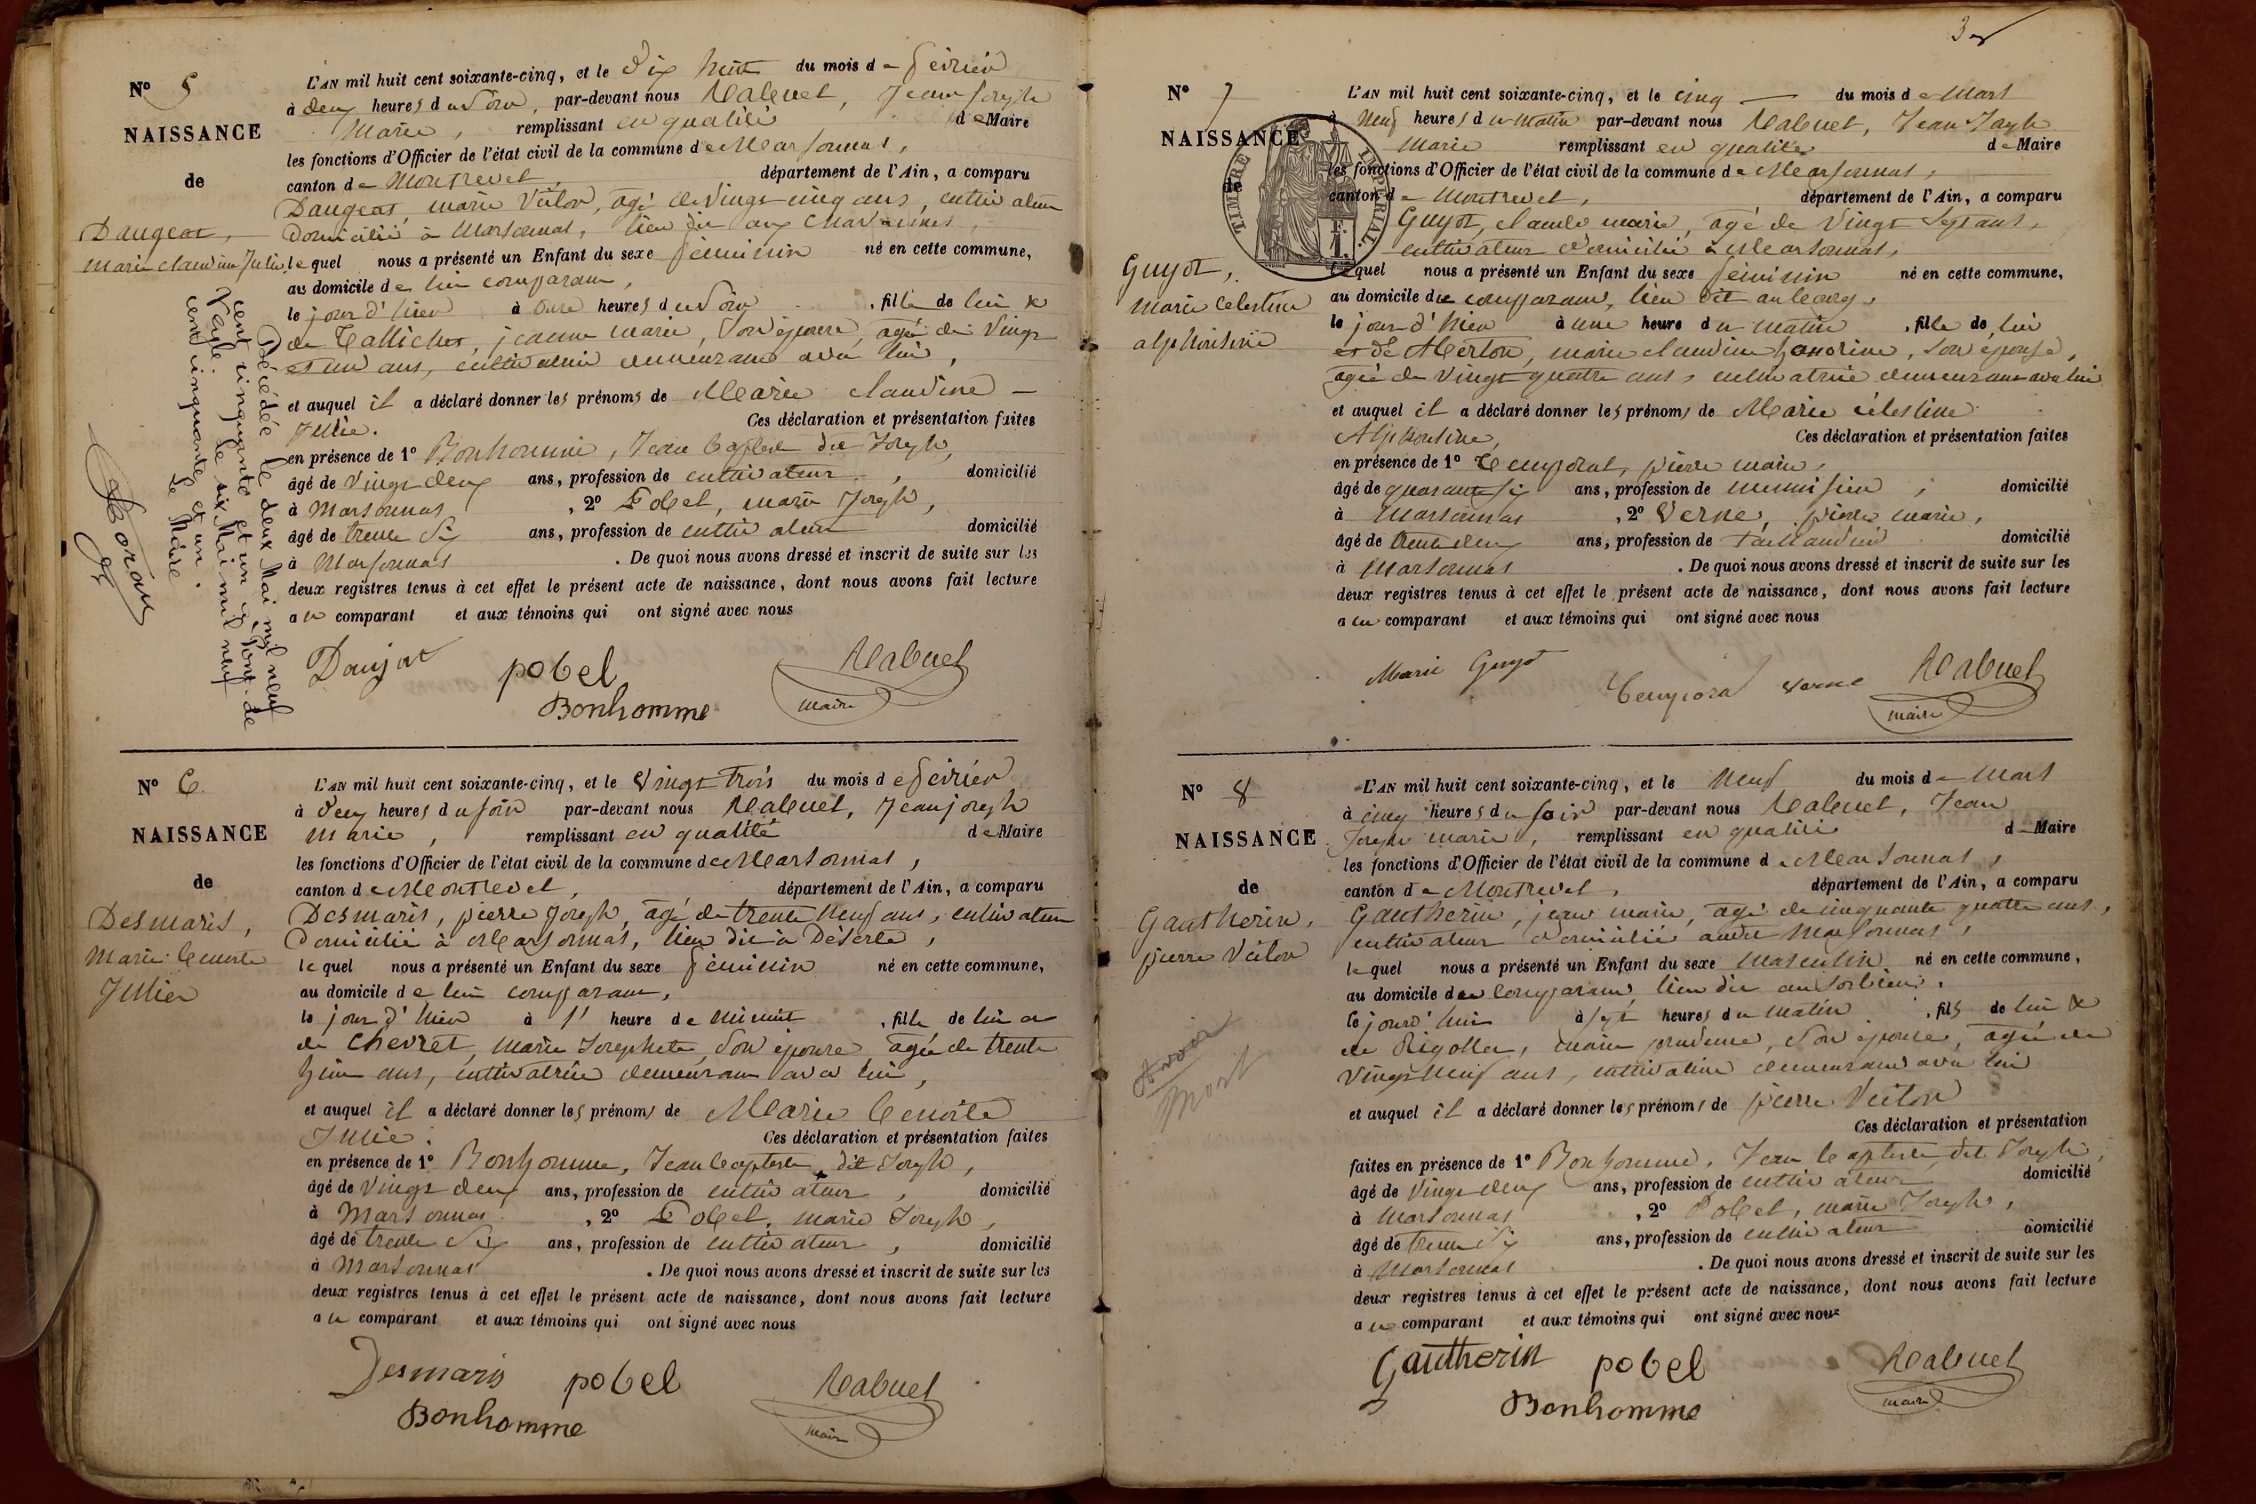 N° 5
NAISSANCE
de
Daugeat,
marie claudine Julie
L'AN mil huit cent soixante-cinq, et le dix huit du mois de février
à deux heures du soir, par-devant nous Rabuel, Jean Joseph
Marie, remplissant en qualité de Maire
les fonctions d'Officier de l'état civil de la commune de Marsonnas,
canton de Montrevel, département de l'Ain, a comparu
Daugeat, marie Victor, agé de vingt cinq ans, cultivateur
domicilié à Marsonnas, lieu dit aux
lequel nous a présenté un Enfant du sexe féminin né en cette commune,
au domicile de lui comparant,
le jour d'hier à onze heures du soir, fille de lui &
de jeanne marie, son épouse, agée de vingt
et un ans, cultivatrice demeurant avec lui,
et auquel il a déclaré donner les prénoms de Marie claudine
Julie. Ces déclaration et présentation faites
en présence de 1° Bonhomme, Jean Baptiste dit Joseph,
âgé de vingt deux ans, profession de cultivateur, domicilié
à Marsonnas, 2° Pobel, marie Joseph,
âgé de trente six ans, profession de cultivateur domicilié
à Marsonnas. De quoi nous avons dressé et inscrit de suite sur les
deux registres tenus à cet effet le présent acte de naissance, dont nous avons fait lecture
au comparant et aux témoins qui ont signé avec nous
Daujat pobel Rabuel
Bonhomme maire
Décédée le deux Mai mil neuf
cent cinquante et un à Pont-de-
Veyle. Le six Mai mil neuf
cent cinquante et un.
Le Maire
N° 6
NAISSANCE
de
Desmaris,
Marie Benoite
Julie
L'AN mil huit cent soixante-cinq, et le vingt trois du mois de février
à deux heures du soir par-devant nous Rabuel, Jean joseph
marie, remplissant en qualité de Maire
les fonctions d'Officier de l'état civil de la commune de Marsonnas,
canton de Montrevel, département de l'Ain, a comparu
Desmaris, pierre joseph, agé de trente neuf ans, cultivateur
domicilié à Marsonnas, lieu dit à Déserte,
lequel nous a présenté un Enfant du sexe féminin né en cette commune,
au domicile de lui comparant,
le jour d'hier à heure de minuit, fille de lui et
de Chevret, marie Josephete, son épouse, agée de trente
huit ans, cultivatrice demeurant avec lui,
et auquel il a déclaré donner les prénoms de Marie Benoite
Julie. Ces déclaration et présentation faites
en présence de 1° Bonhomme, Jean Baptiste dit Joseph,
âgé de vingt deux ans, profession de cultivateur, domicilié
à Marsonnas, 2° Pobel, marie Joseph,
âgé de trente six ans, profession de cultivateur, domicilié
à Marsonnas. De quoi nous avons dressé et inscrit de suite sur les
deux registres tenus à cet effet le présent acte de naissance, dont nous avons fait lecture
au comparant et aux témoins qui ont signé avec nous
Desmaris pobel Rabuel
Bonhomme maire
3
N° 7
NAISSANCE
de
TIMBRE IMPERIAL
Guyot,
marie Celestine
alphonsine
L'AN mil huit cent soixante-cinq, et le cinq du mois de Mars
à neuf heures du matin par-devant nous Rabuel, Jean Joseph
Marie remplissant en qualité de Maire
les fonctions d'Officier de l'état civil de la commune de Marsonnas,
canton de Montrevel, département de l'Ain, a comparu
Guyot, claude marie, agé de vingt sept ans,
cultivateur domicilié à Marsonnas,
lequel nous a présenté un Enfant du sexe féminin né en cette commune,
au domicile du comparant, lieu dit au bourg,
le jour d'hier à une heure du matin, fille de lui
et de marie claudine honorine, son épouse,
agée de vingt quatre ans, cultivatrice demeurant avec lui
et auquel il a déclaré donner les prénoms de Marie célestine
Alphonsine, Ces déclaration et présentation faites
en présence de 1° Temporal, pierre marie,
âgé de quarante six ans, profession de menuisier, domicilié
à Marsonnas, 2° Verne, pierre marie,
âgé de trente deux ans, profession de taillandier domicilié
à Marsonnas. De quoi nous avons dressé et inscrit de suite sur les
deux registres tenus à cet effet le présent acte de naissance, dont nous avons fait lecture
au comparant et aux témoins qui ont signé avec nous
Marie Guyot Temporal Verne Rabuel
maire
N° 8
NAISSANCE
de
Gautherin,
pierre Victor
Mort
L'AN mil huit cent soixante-cinq, et le neuf du mois de Mars
à cinq heures du soir par-devant nous Rabuel, Jean
Joseph marie, remplissant en qualité de Maire
les fonctions d'Officier de l'état civil de la commune de Marsonnas,
canton de Montrevel, département de l'Ain, a comparu
Gautherin, jean marie, agé de cinquante quatre ans,
cultivateur domicilié audit Marsonnas,
lequel nous a présenté un Enfant du sexe masculin né en cette commune,
au domicile du comparant, lieu dit au
le jourd'hui à sept heures du matin, fils de lui &
de Rigollet, marie prudence, son épouse, agée de
vingt neuf ans, cultivatrice demeurant avec lui
et auquel il a déclaré donner les prénoms de pierre Victor
Ces déclaration et présentation
faites en présence de 1° Bonhomme, Jean Baptiste dit Joseph,
âgé de vingt deux ans, profession de cultivateur domicilié
à Marsonnas, 2° Pobel, marie Joseph,
âgé de trente six ans, profession de cultivateur domicilié
à Marsonnas. De quoi nous avons dressé et inscrit de suite sur les
deux registres tenus à cet effet le présent acte de naissance, dont nous avons fait lecture
au comparant et aux témoins qui ont signé avec nous
Gautherin pobel Rabuel
Bonhomme maire